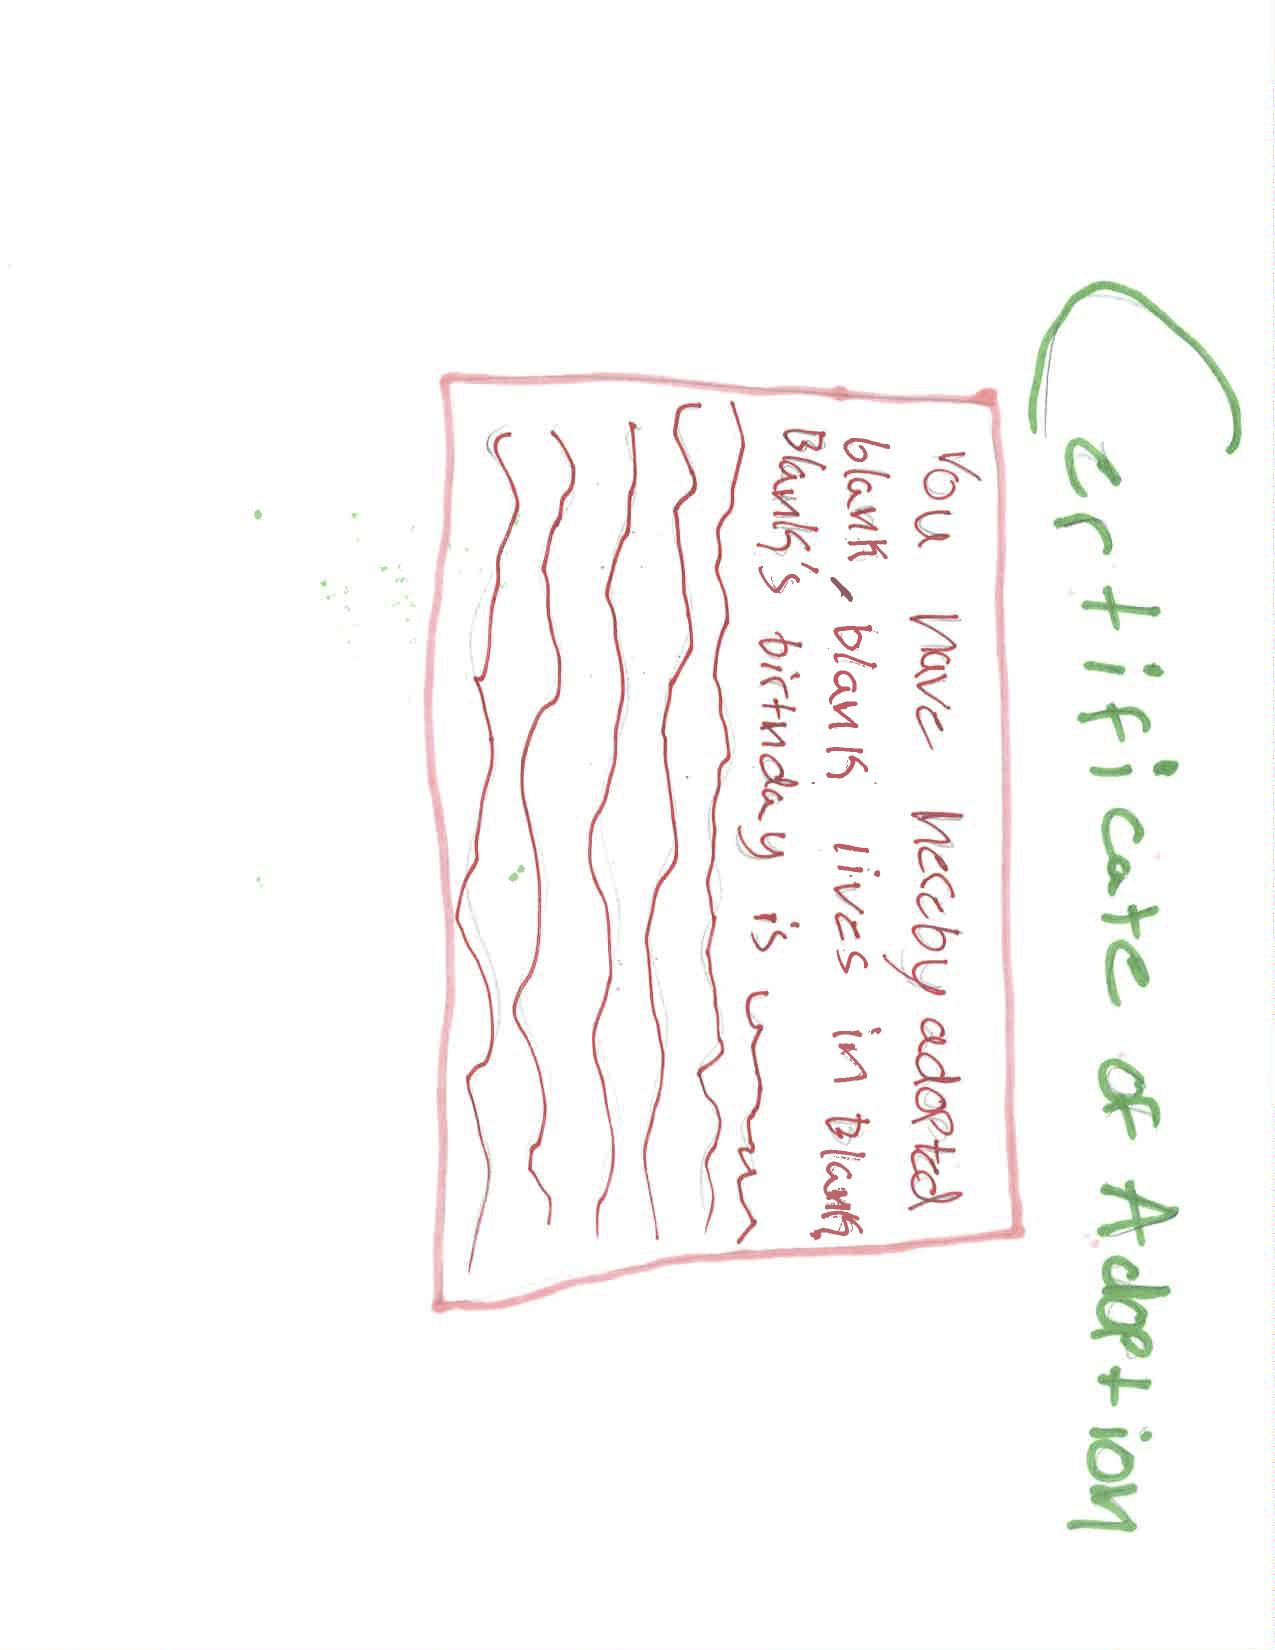 Certificate of Adoption
You have hereby adopted
blank, blank lives in blank
Blank's birthday is